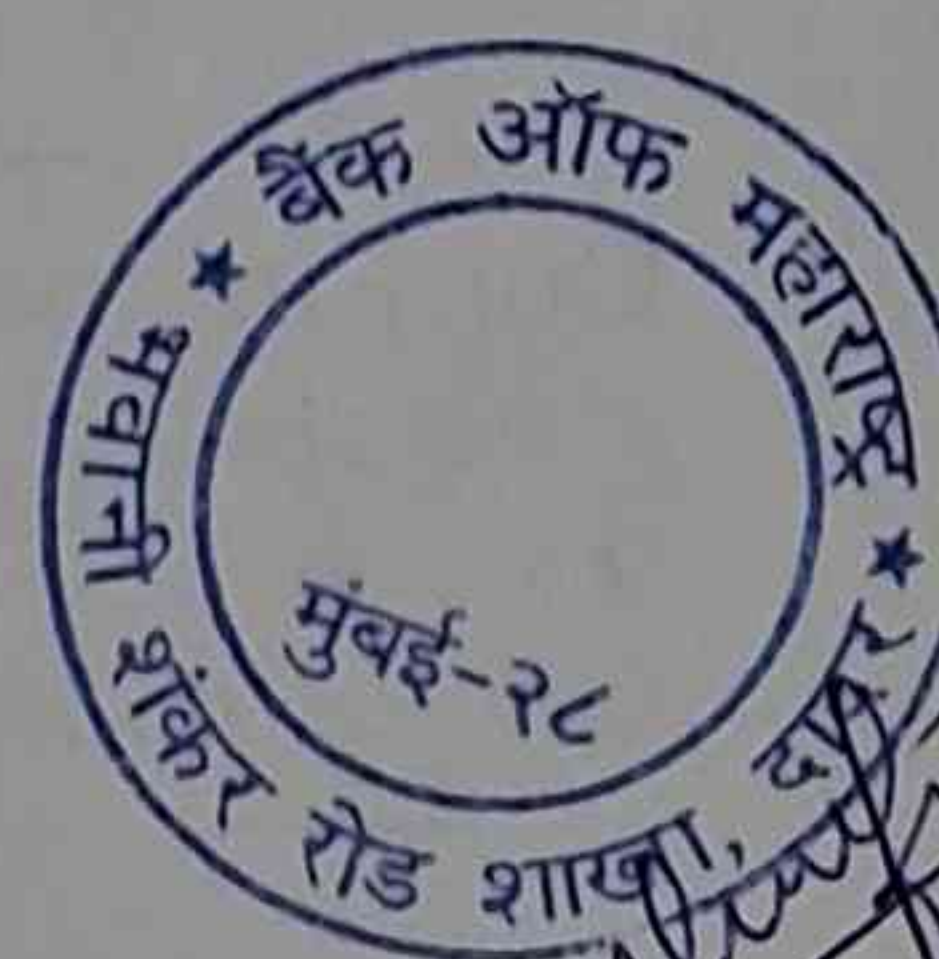 ★ बैंक ऑफ महाराष्ट्र ★
भवानी शंकर रोड शाखा, दादर
मुंबई-२८